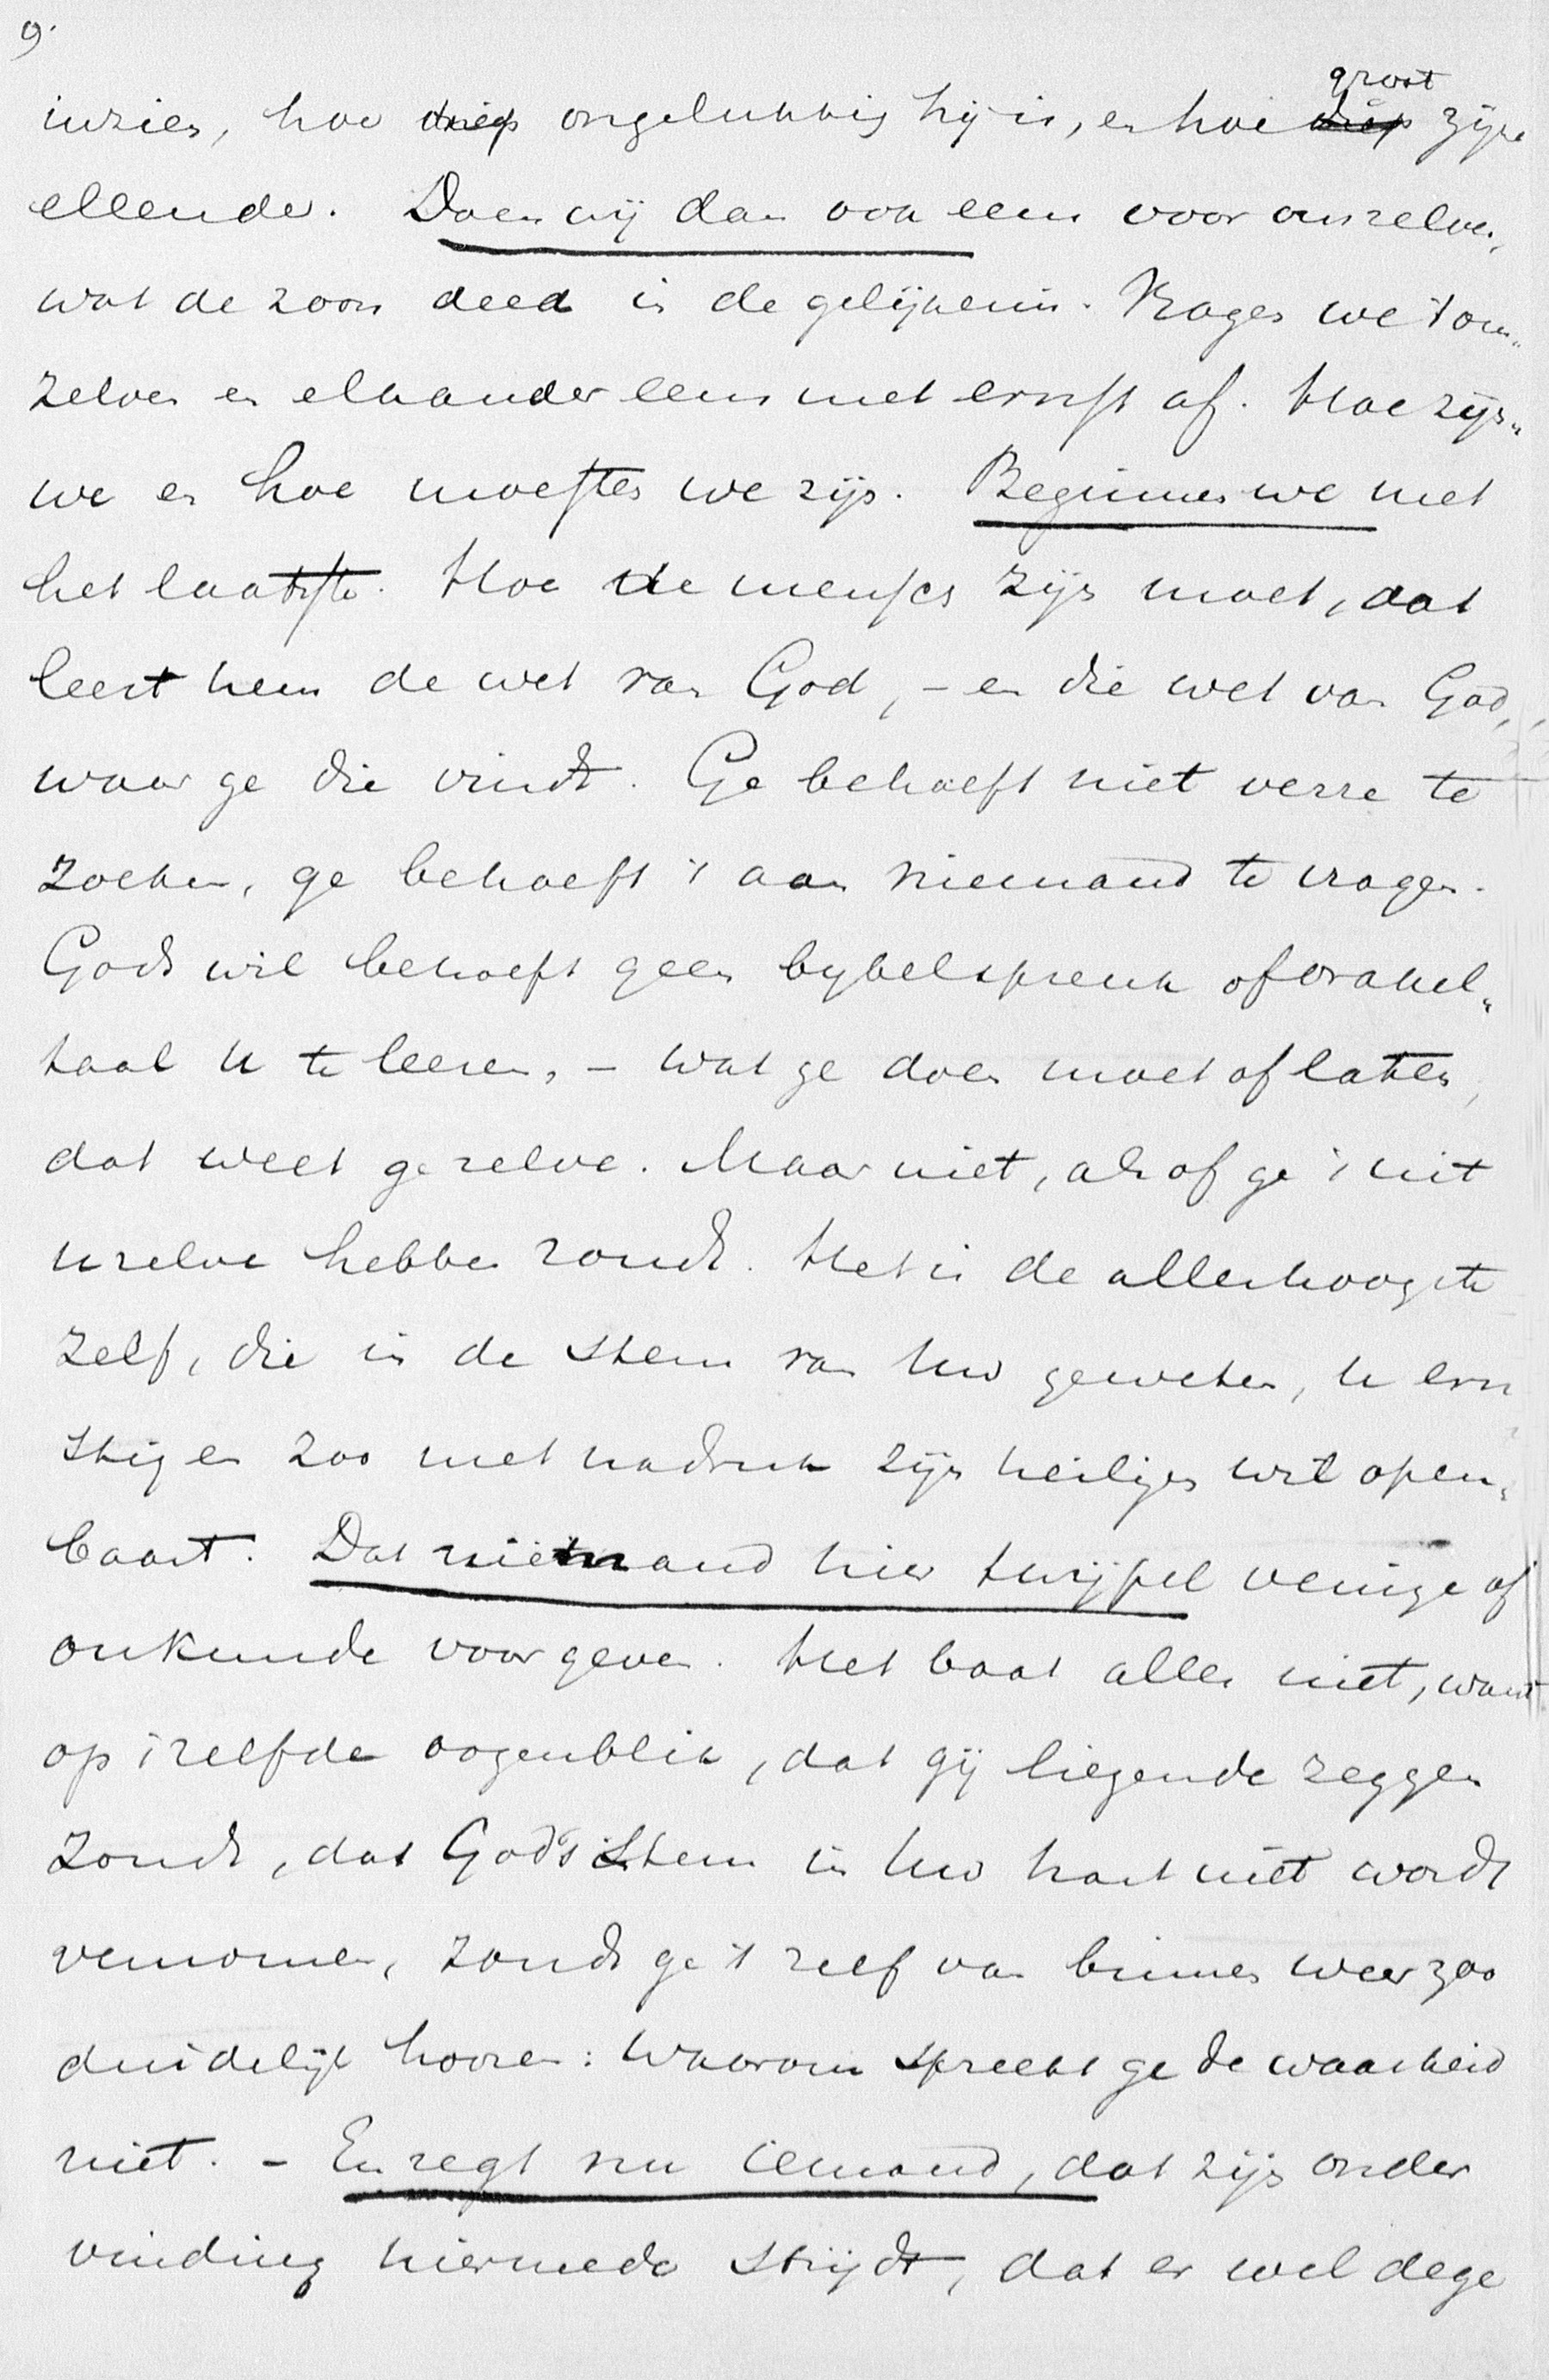 9.
groot
inzien, hoe diep ongelukkig hij is, en hoe diep zijne
ellende. Doen wij dan ook eens voor onszelve,
wat de zoon deed in de gelijkenis. Vragen we 't ons„
zelven en elkander eens met ernst af. Hoe zijn„
we en hoe moesten we zijn. Beginnen we met
het laatste. Hoe de mensch zijn moet, dat
leert hem de wet van God, – en die wet van God,
waar ge die vindt. Ge behoeft niet verre te
zoeken, ge behoeft 't aan niemand te vragen.
Gods wil behoeft geen bybelspreuk of orakel„
taal u te leeren, – wat ge doen moet of laten,
dat weet ge zelve. Maar niet, als of ge 't uit
uzelve hebben zoudt. Het is de allerhoogste
zelf, die in de stem van Uw geweten, u ern
stig en zoo met nadruk zijn heiligen wil open„
baart. Dat niemand hier twijfel veinze of
onkunde voorgeven. Het baat alles niet, want
op 't zelfde oogenblik, dat gij liegende zeggen
zoudt, dat Gods stem in Uw hart niet wordt
vernomen, zoudt ge 't zelf van binnen weer zoo
duidelijk hooren: Waarom spreekt ge de waarheid
niet. – En zegt nu iemand, dat zijn onder
vinding hiermede strijdt, dat er wel dege